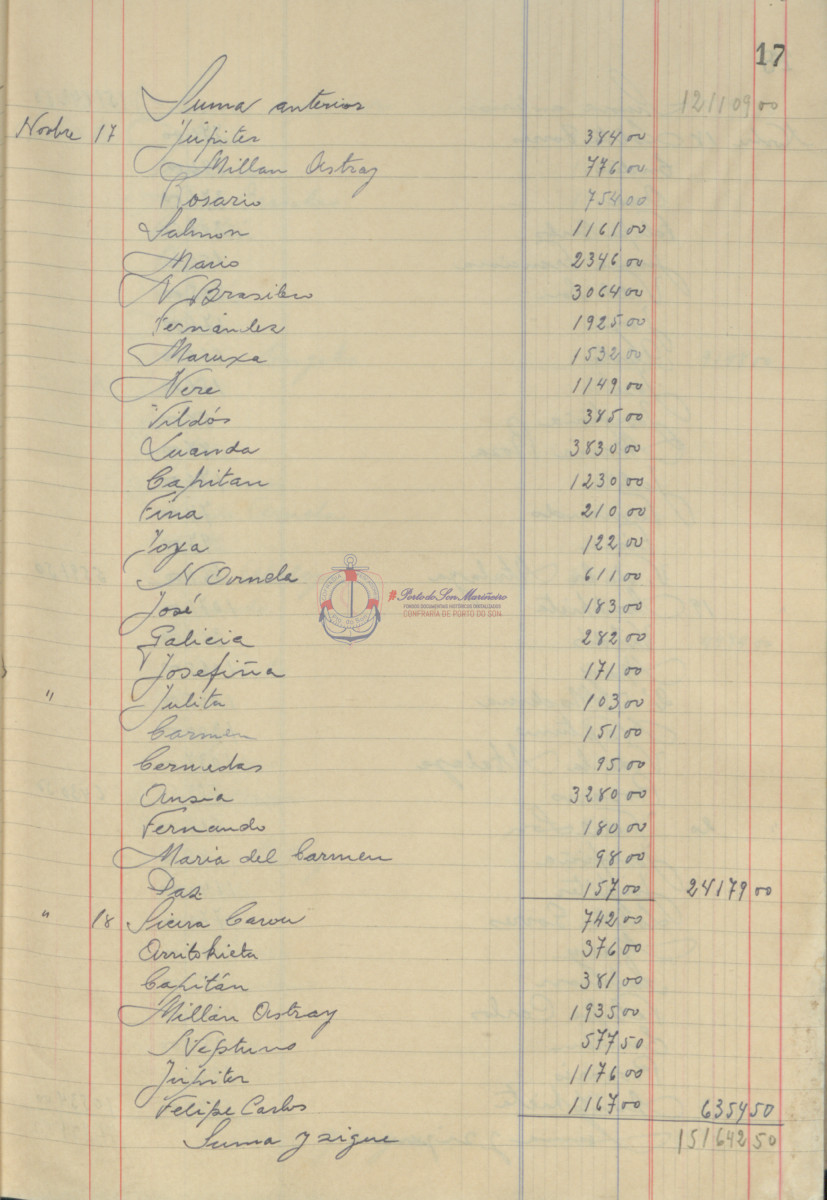 17
Suma anterior 121109 00
Novbre 17 Júpiter 384 00
Millan Astray 776 00
Rosario 754 00
Salmon 1161 00
Mario 2346 00
N Brasileu 3064 00
Fernandez 1925 00
Maruxa 1532 00
Nere 1149 00
Vildós 385 00
Luanda 3830 00
Capitan 1230 00
Fina 210 00
Toxa 122 00
N Ornela 611 00
José 183 00
Galicia 282 00
Josefiña 171 00
" Julita 103 00
Carmen 151 00
Cernedas 95 00
Ansia 3280 00
Fernando 180 00
Maria del Carmen 98 00
Paz 157 00 24179 00
" 18 Sieira Carou 742 00
Arritskieta 376 00
Capitán 381 00
Millán Astray 1935 00
Neptuno 577 50
Júpiter 1176 00
Felipe Carlos 1167 00 6354 50
Suma y sigue 151642 50
#PortodoSon Mariñeiro
FONDOS DOCUMENTAIS HISTÓRICOS DIXITALIZADOS
CONFRARÍA DE PORTO DO SON